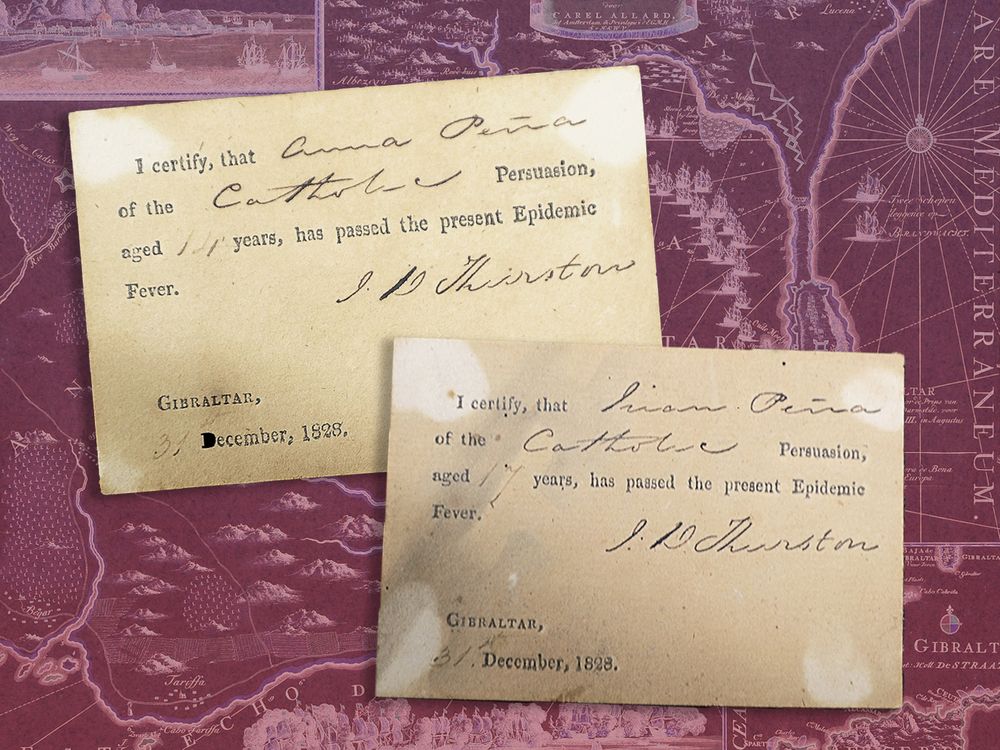 CAREL ALLARD.
Lucena
Albezera
I certify, that Anna Peña
of the Catholic Persuasion,
aged 14 years, has passed the present Epidemic
Fever.
J. D Thurston
GIBRALTAR,
31 December, 1828.
I certify, that Juan Peña
of the Catholic Persuasion,
aged 17 years, has passed the present Epidemic
Fever.
J. D Thurston
GIBRALTAR,
31st December, 1828.
ARE MEDITERRANEUM.
Twee Schepen
leggende op
BRANDWACHT.
Bejar
Tariffa
Cabo Tariffa
ECHO D
GIBRALT
DE STRAAT
CEUT